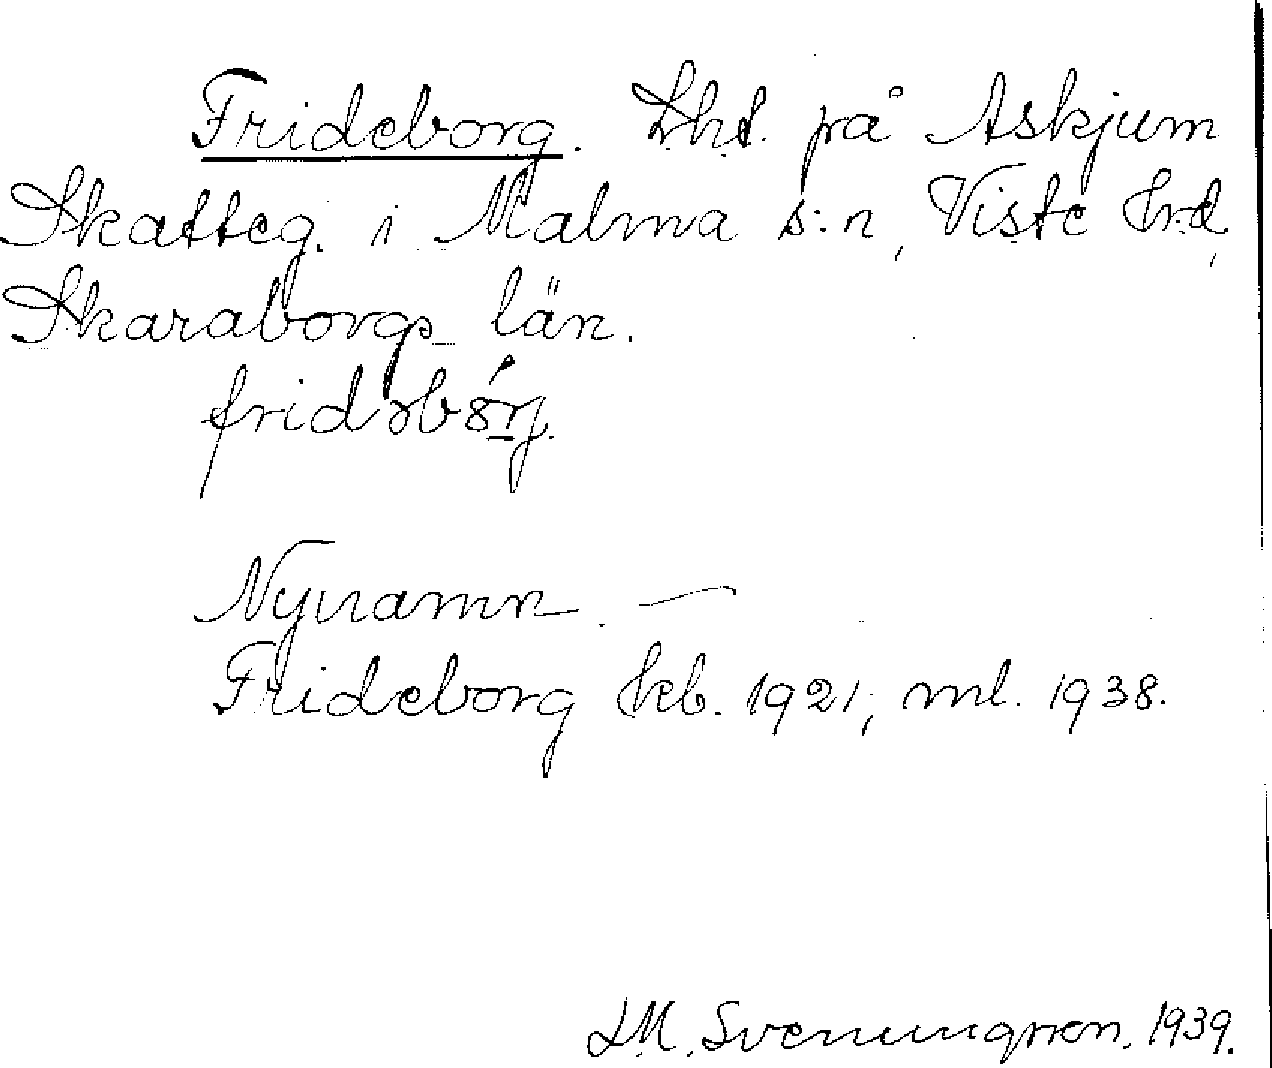 Frideborg. Lht. på Askjum
Skatteg. i Malma s:n, Viste hrd,
Skaraborgs län.
Nynamn. —
Frideborg kb. 1921, ml. 1938.
J.M. Svenungsson. 1939.